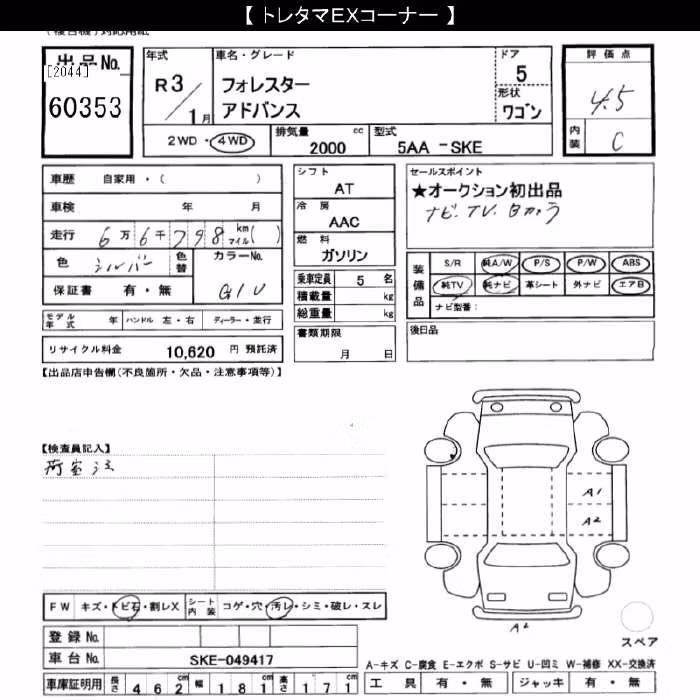 【 トレタマEXコーナー 】
出品No. [2044] 60353
年式 R3/1月
車名・グレード フォレスター アドバンス
ドア 5
形状 ワゴン
評価点 4.5
内装 C
2WD・4WD
排気量 2000 cc
型式 5AA-SKE
車歴 自家用・( )
車検 年 月
走行 6万6千798 km マイル( )
色 シルバー 色替 カラーNo. G1U
保証書 有・無
シフト AT
冷房 AAC
燃料 ガソリン
乗車定員 5 名
積載量 kg
総重量 kg
セールスポイント
★オークション初出品
ナビ.TV.Bカメラ
装備品 S/R 純A/W P/S P/W ABS
純TV 純ナビ 革シート 外ナビ エアB
ナビ型番：
モデル年式 年 ハンドル 左・右 ディーラー・並行
リサイクル料金 10,620 円 預託済
書類期限 月 日
後日品
【出品店申告欄(不良箇所・欠品・注意事項等)】
【検査員記入】
A1
A2
A2
スペア
FW キズ・トビ石・割レX シート内装 コゲ・穴・汚レ・シミ・破レ・スレ
登録No.
車台No. SKE-049417
車庫証明用 長さ 462 cm 幅 181 cm 高さ 171 cm
A-キズ C-腐食 E-エクボ S-サビ U-凹ミ W-補修 XX-交換済
工具 有・無 ジャッキ 有・無